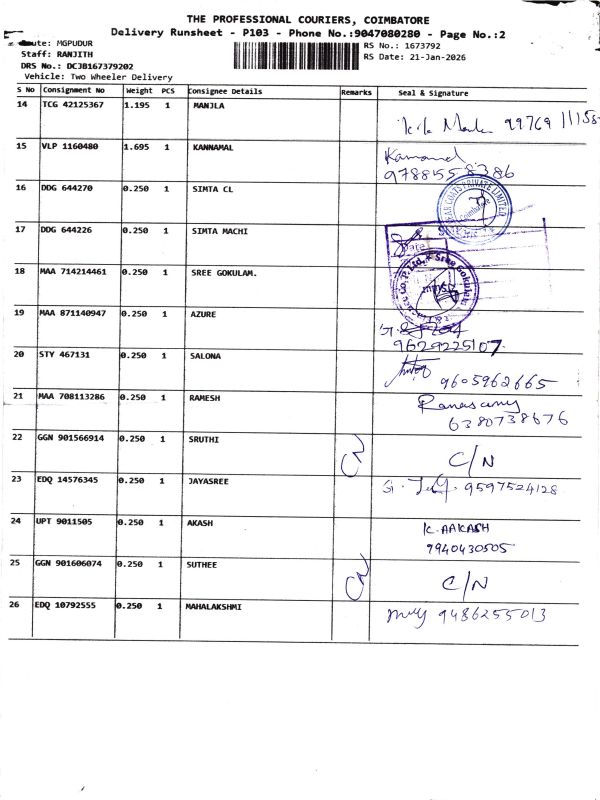 THE PROFESSIONAL COURIERS, COIMBATORE
Delivery Runsheet - P103 - Phone No.:9047080280 - Page No.:2
Route: MGPUDUR
RS No.: 1673792
Staff: RANJITH
RS Date: 21-Jan-2026
DRS No.: DCJB167379202
Vehicle: Two Wheeler Delivery
S No Consignment No Weight PCS Consignee Details Remarks Seal & Signature
14 TCG 42125367 1.195 1 MANJLA 99769 11155
15 VLP 1160480 1.695 1 KANNAMAL
9788558386
16 DDG 644270 0.250 1 SIMTA CL
17 DDG 644226 0.250 1 SIMTA MACHI
18 MAA 714214461 0.250 1 SREE GOKULAM.
19 MAA 871140947 0.250 1 AZURE
9629225107
20 STY 467131 0.250 1 SALONA
9605962665
21 MAA 708113286 0.250 1 RAMESH Ramasamy
6380738676
22 GGN 901566914 0.250 1 SRUTHI C/N
23 EDQ 14576345 0.250 1 JAYASREE 9597524128
24 UPT 9011505 0.250 1 AKASH K. AAKASH
9940430505
25 GGN 901606074 0.250 1 SUTHEE C/N
26 EDQ 10792555 0.250 1 MAHALAKSHMI 9486255013